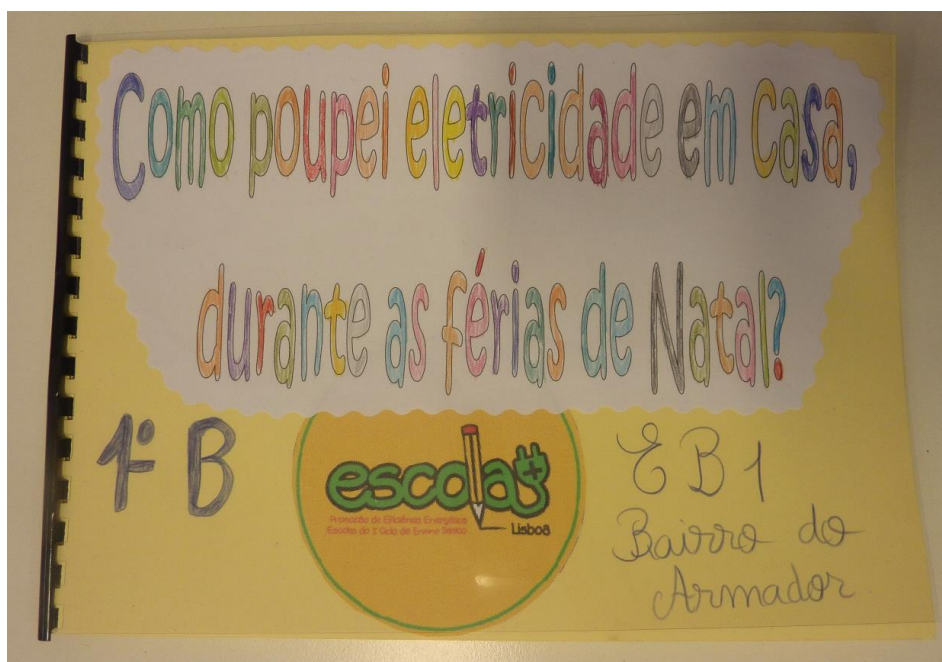 Como poupei eletricidade em casa,
durante as férias de Natal?
1º B
escola+
Promoção de Eficiência Energética
Escolas do 1º Ciclo do Ensino Básico
Lisboa
EB1
Bairro do
Armador